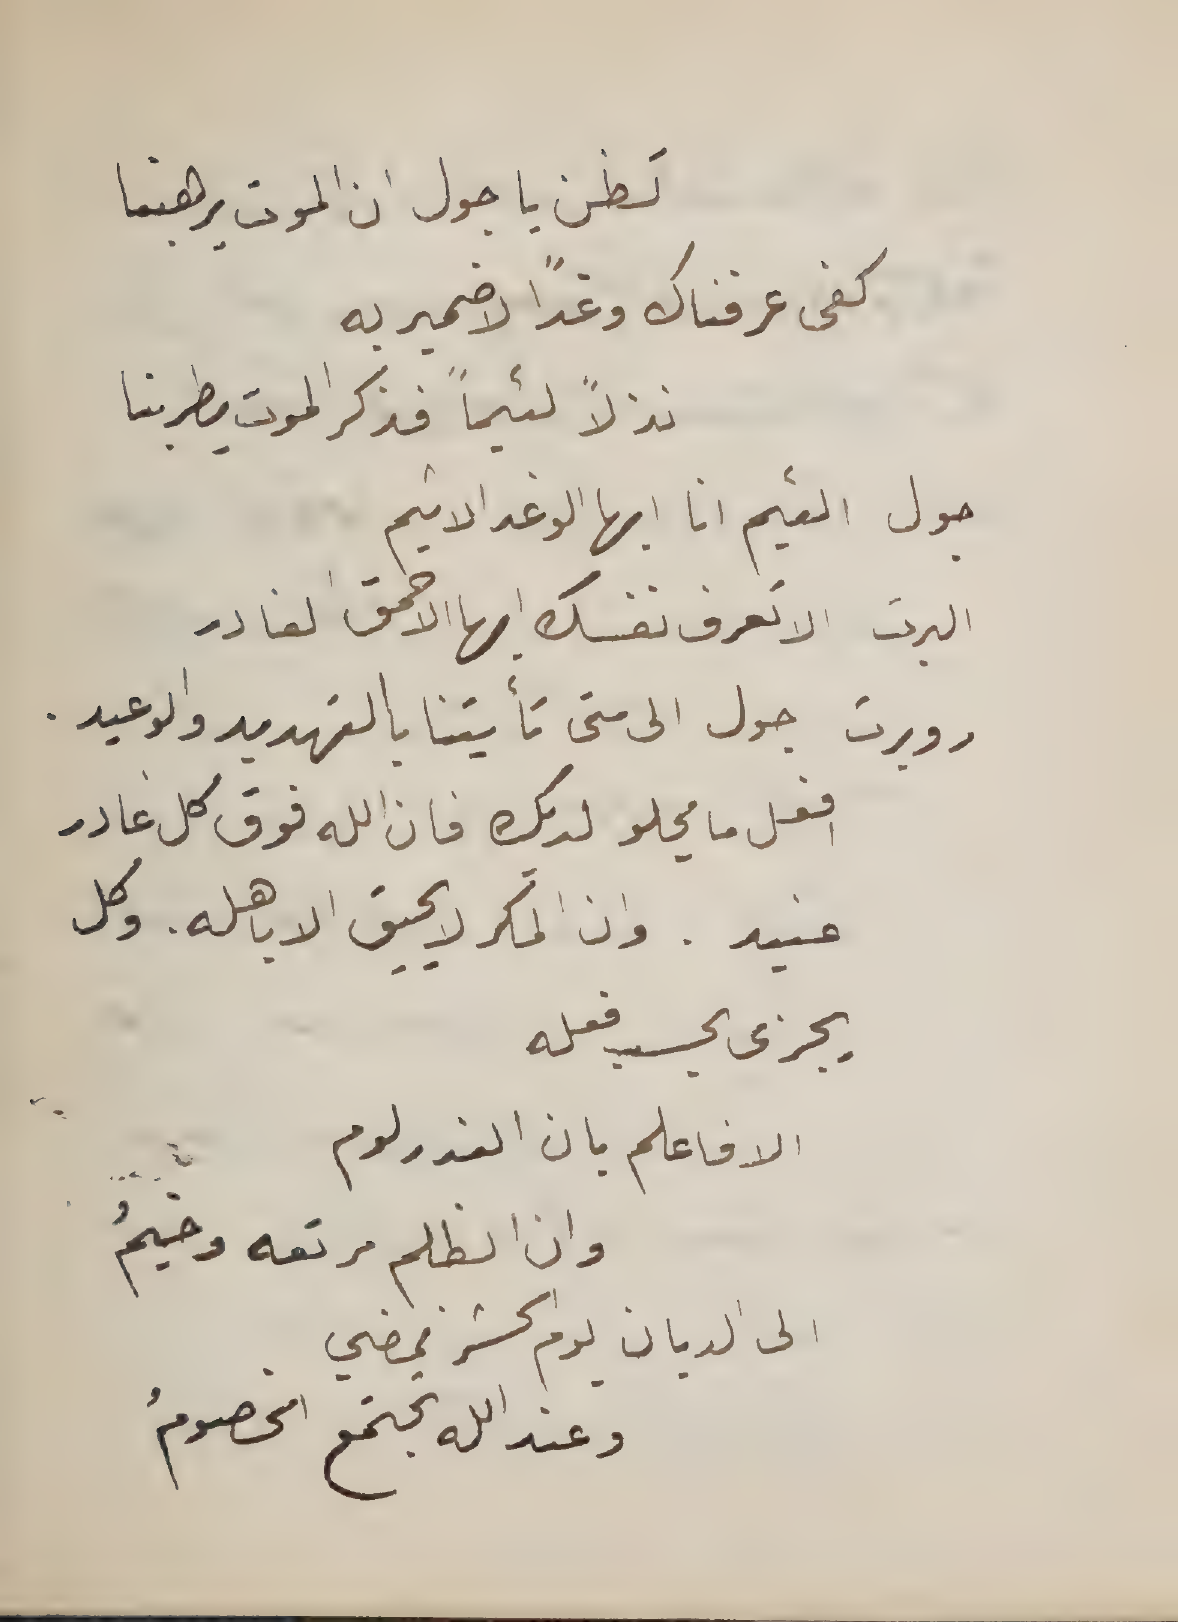 تظن يا جول ان الموت يرهبنا
كفى عرفناك وغدًا لا ضمير به
نذلاً لئيماً فذكر الموت يطربنا
جول اللئيم انا ايها الوغد الاثيم
البرت الا تعرف نفسك ايها الاحمق الغادر
روبرت جول الى متى تأيتنا بالتهديد والوعيد .
افعل ما يحلو لديك فان الله فوق كل غادر
عنيد . وان المكر لا يحيق الا باهله . وكل
يجزى بحسب فعله
الا فاعلم بان الغدر لوم
وان الظلم مرتعه وخيمُ
الى الديان يوم الحشر نمضي
وعند الله تجتمع الخصومُ